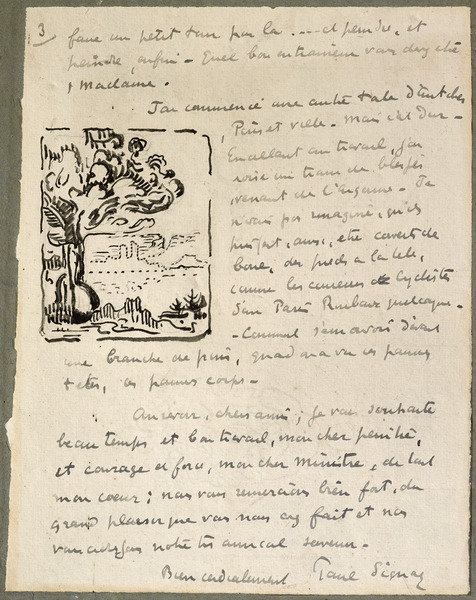 3
faire un petit tour par là .... et peindre, et
peindre, enfin — Quel bon entrainem vous
Madame.
J'ai commencé une autre toile d'Antibes
Pins et ville — Mais c'est dur —
En allant au travail, j'ai
croisé un train de blessés
venant de l'Argonne — Je
n'avais pas imaginé, qu'ils
pussent, aussi, être couverts de
boue, des pieds à la tête,
comme les coureurs cyclistes
d'un Paris Roubaix quelconque —
— Comment s'émouvoir devant
une branche de pin, quand on a vu ces pauvres
têtes, ces pauvres corps —
Au revoir, chers amis ; je vous souhaite
beau temps et bon travail, mon cher peintre,
et courage et force, mon cher Ministre, de tout
mon coeur ; nous vous remercions bien fort, du
grand plaisir que vous nous avez fait et nos
notre très amical souvenir —
Bien cordialement Paul Signac